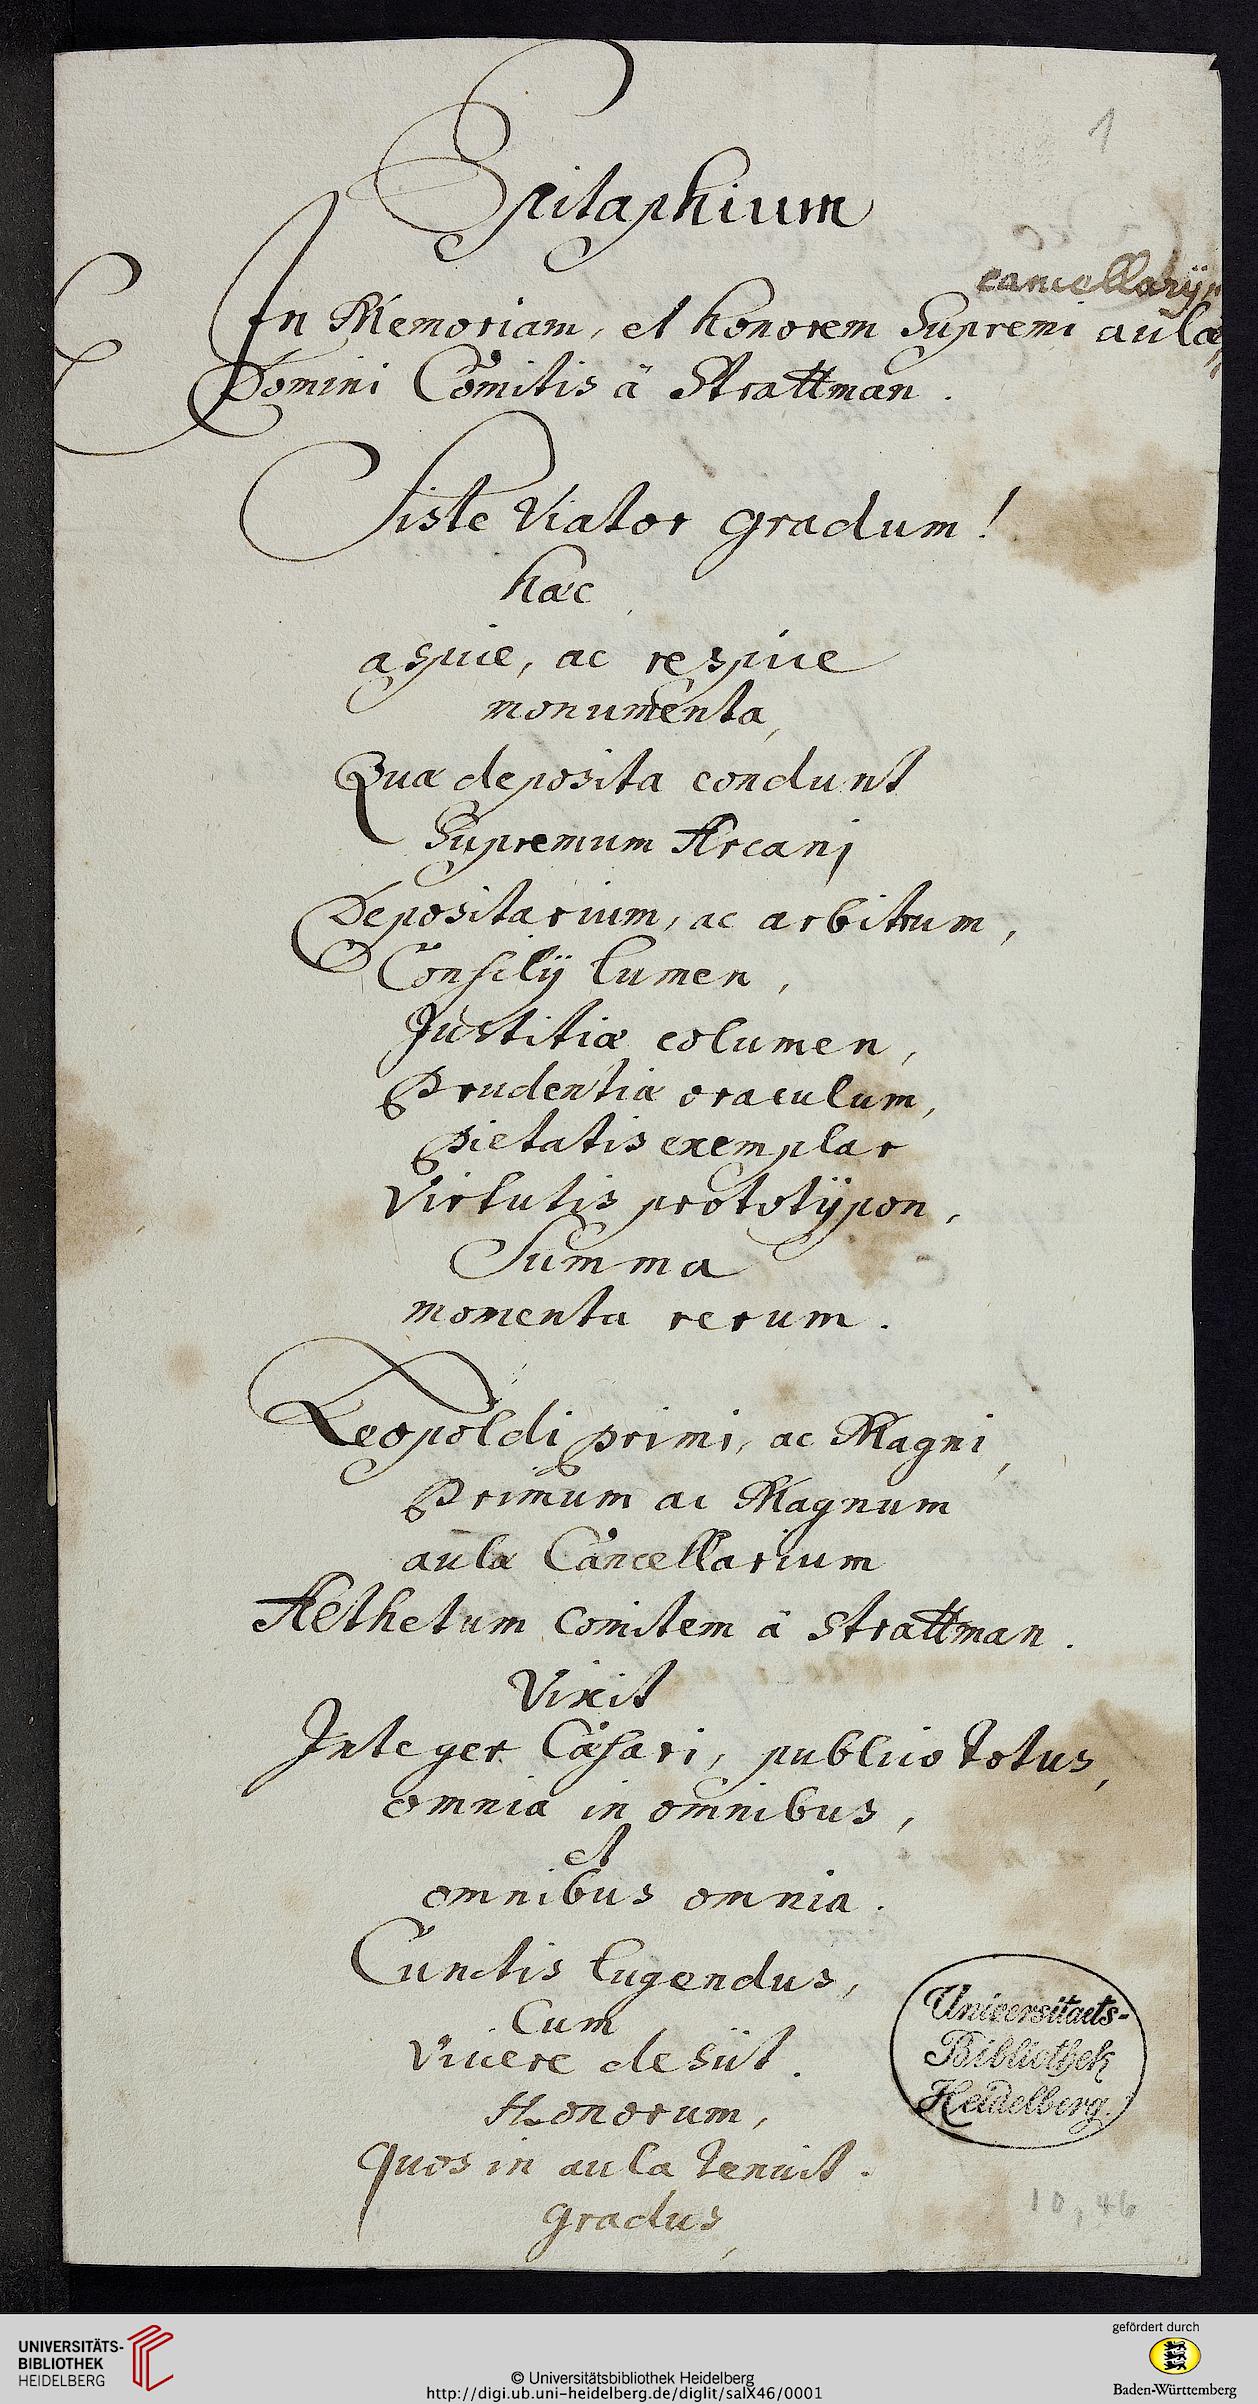 1
Epitaphium
cancellarij
In Memoriam, et honorem Supremi aulæ
Domini Comitis à Strattman.
Siste Viator gradum!
hæc
aspice, ac respice
monumenta,
Quæ deposita condunt
Supremum Arcanj
Depositarium, ac arbitrum,
Consilÿ lumen,
Justitiæ columen,
Prudentiæ oraculum,
Pietatis exemplar
Virtutis prototÿpon,
Summa
momenta rerum.
Leopoldi primi, ac Magni,
Primum ac Magnum
aulæ Cancellarium
Aethetum Comitem à Strattman.
Vixit
Integer Cæsari, publico totus,
omnia in omnibus,
et
omnibus omnia.
Cunctis lugendus,
Cum
Vivere desiit.
Honorum,
quos in aula tenuit.
gradus,
Universitaets-
Bibliothek
Heidelberg.
10,46
UNIVERSITÄTS-
BIBLIOTHEK
HEIDELBERG
© Universitätsbibliothek Heidelberg
http://digi.ub.uni-heidelberg.de/diglit/salX46/0001
gefördert durch
Baden-Württemberg